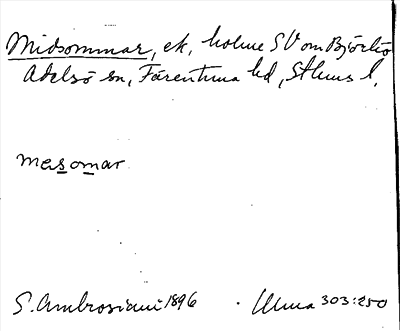 Midsommar, ek, holme SV om Björkö
Adelsö sn, Färentuna hd, Sthlms l.
mesomar
S. Ambrosiani 1896 Ulma 303:250